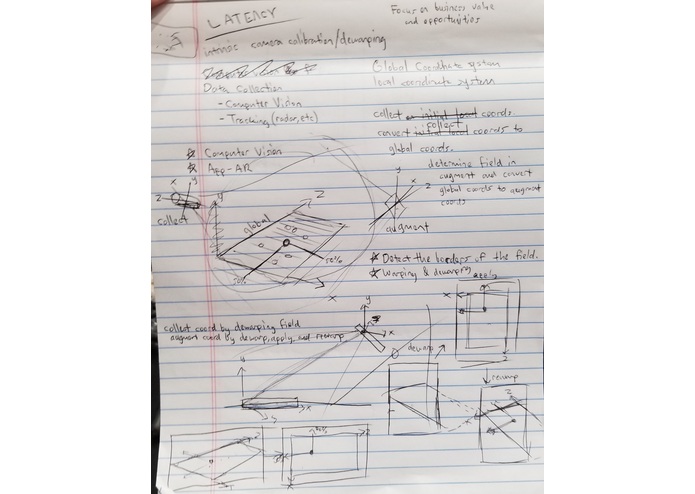 LATENCY
Focus on business value
and opportunities
intrinsic camera calibration/dewarping
Data Collection
- Computer Vision
- Tracking (radar, etc)
Global Coordinate system
local coordinate system
collect or initial local coords.
collect
convert initial local coords to
global coords.
☆ Computer Vision
☆ App-AR
determine field in
augment and convert
global coords to augment
coords
x
y
z
collect
y
global
z
50%
50%
x
y
z
x
augment
☆ Detect the borders of the field.
☆ Warping & dewarping
apply
collect coord by dewarping field
augment coord by dewarp, apply, and rewarp
y
z
x
dewarp
x
z
rewarp
z
y
x
50%
x